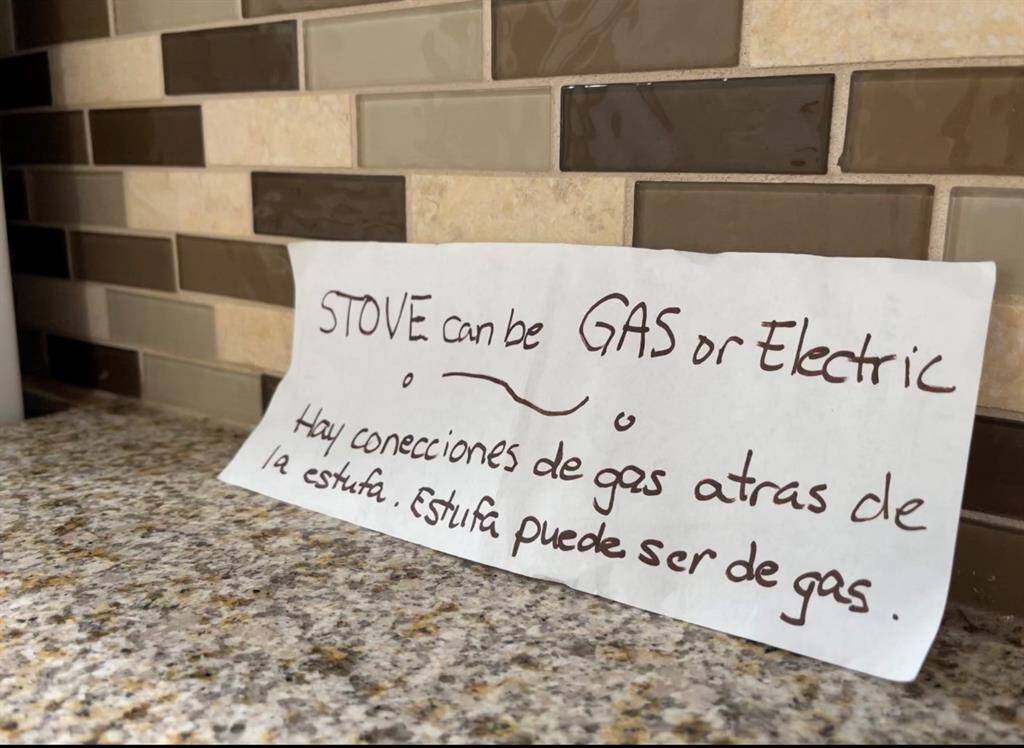 STOVE can be GAS or Electric
Hay conecciones de gas atras de
la estufa. Estufa puede ser de gas.